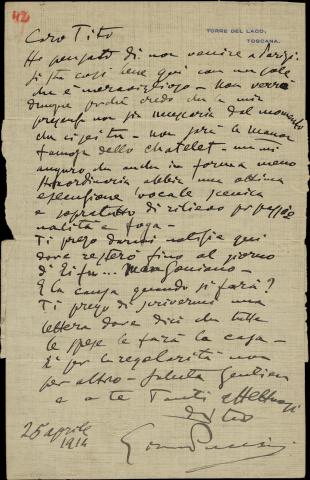 42
TORRE DEL LAGO,
TOSCANA.
Caro Tito
Ho pensato di non venire a Parigi.
Si sta così bene qui con un sole
che è meraviglioso - non verrò
dunque poichè credo che a mia
presenza non sia necessaria dal momento
che - non sarà la Manon
famosa dello chatelet - mi
auguro che anche in forma meno
straordinaria abbia una ottima
esecuzione vocale scenica
e sopratutto di rilievo
nalità e foga -
Ti prego darmi notizie qui
dove resterò fino al giorno
di
E la causa quando si farà?
Ti prego di scrivermi una
lettera dove dici che tutte
le spese le farà la casa -
E' per la regolarità non
per altro - Saluta
e a te Tanti
tuo
25 aprile
1914
Giacomo Puccini